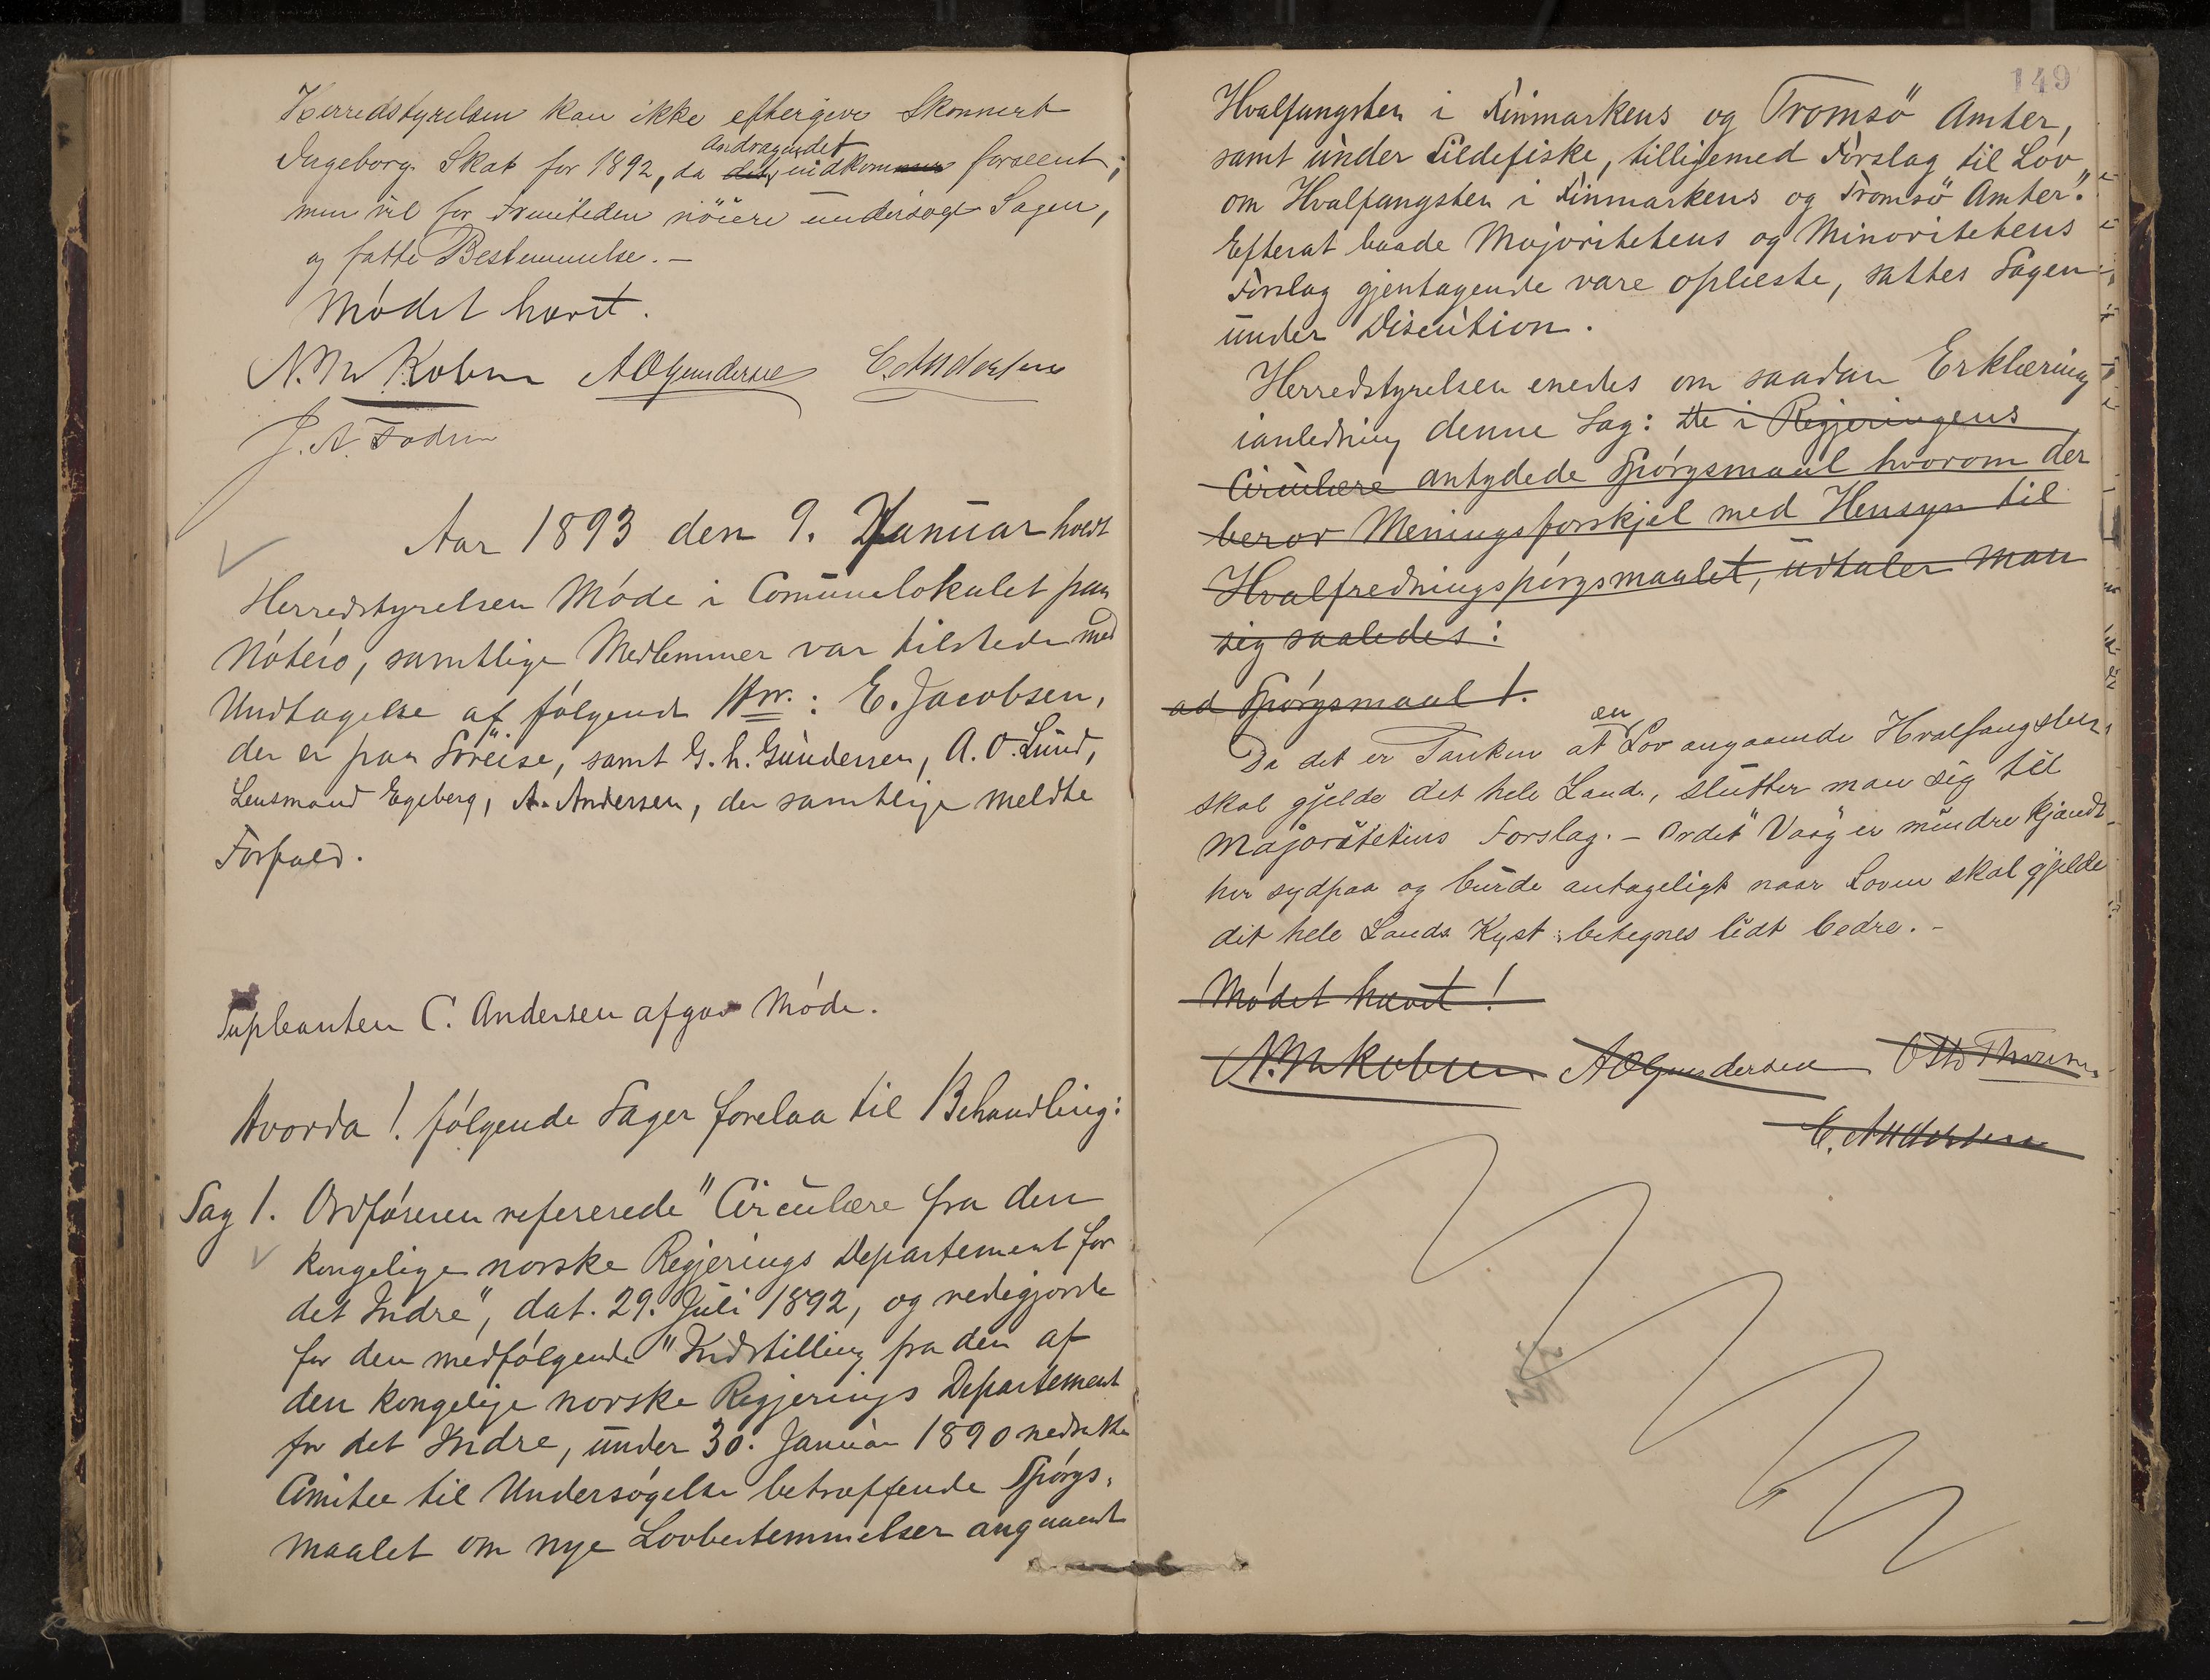 Herredstyrelsen kan ikke eftergive Skonnert
Ingeborgs Skat for 1892, da det Andragendet indkommer forseent;
men vil for Fremtiden nöiere undersøge Sagen,
og fatte Bestemmelse. –
Mödet hævet.
AOGundersen C. Andersen
Aar 1893 den 9. Januar holdt
Herredstyrelsen Möde i Comunelokalet paa
Nöterö, samtlige Medlemmer var tilstede med
Undtagelse af følgende Hrr.: E. Jacobsen,
der er paa Söreise, samt G. h. Gundersen, A. O. Lund,
Lensmand Egeberg, A. Andersen, der samtlige meldte
Forfald.
Supleanten C. Andersen afgav Möde.
Hvorda! følgende Sager forelaa til Behandling:
Sag 1. Ordföreren refererede "Circulære fra den
kongelige norske Regjerings Departement for
det Indre", dat. 29. Juli 1892, og redegjorde
for den medfølgende "Indstilling fra den af
den kongelige norske Regjerings Departement
for det Indre, under 30. Januar 1890 nedsatte
Comitee til Undersögelse betræffende Spörgs-
maalet om nye Lovbestemmelser angaaende
149
Hvalfangsten i Finmarkens og Tromsö Amter,
samt under Sildefiske, tilligemed Forslag til Lov
om Hvalfangsten i Finmarkens og Tromsö Amter."
Efterat baade Majoritetens og Minoritetens
Forslag gjentagende vare oplæste, sattes Sagen
under Discution.
Herredstyrelsen enedes om saadan Erklæring
ianledning denne Sag: De i Regjeringens
Circulære antydede Spörgsmaal hvorom der
beror Meningsforskjel med Hensyn til
Hvalfredningspörgsmaalet, udtaler man
sig saaledes:
ad Spörgsmaal 1.
Da det er Tanken at en Lov angaaende Hvalfangsten
skal gjelde det hele Land, slutter man sig til
Majoritetens Forslag. – Ordet "Vaag" er mindre kjendt
her sydpaa og burde antageligt naar Loven skal gjelde
det hele Lands Kyst betegnes lidt bedre. –
Mödet hævet!
AOGundersen Otto Thorsen
C. Andersen